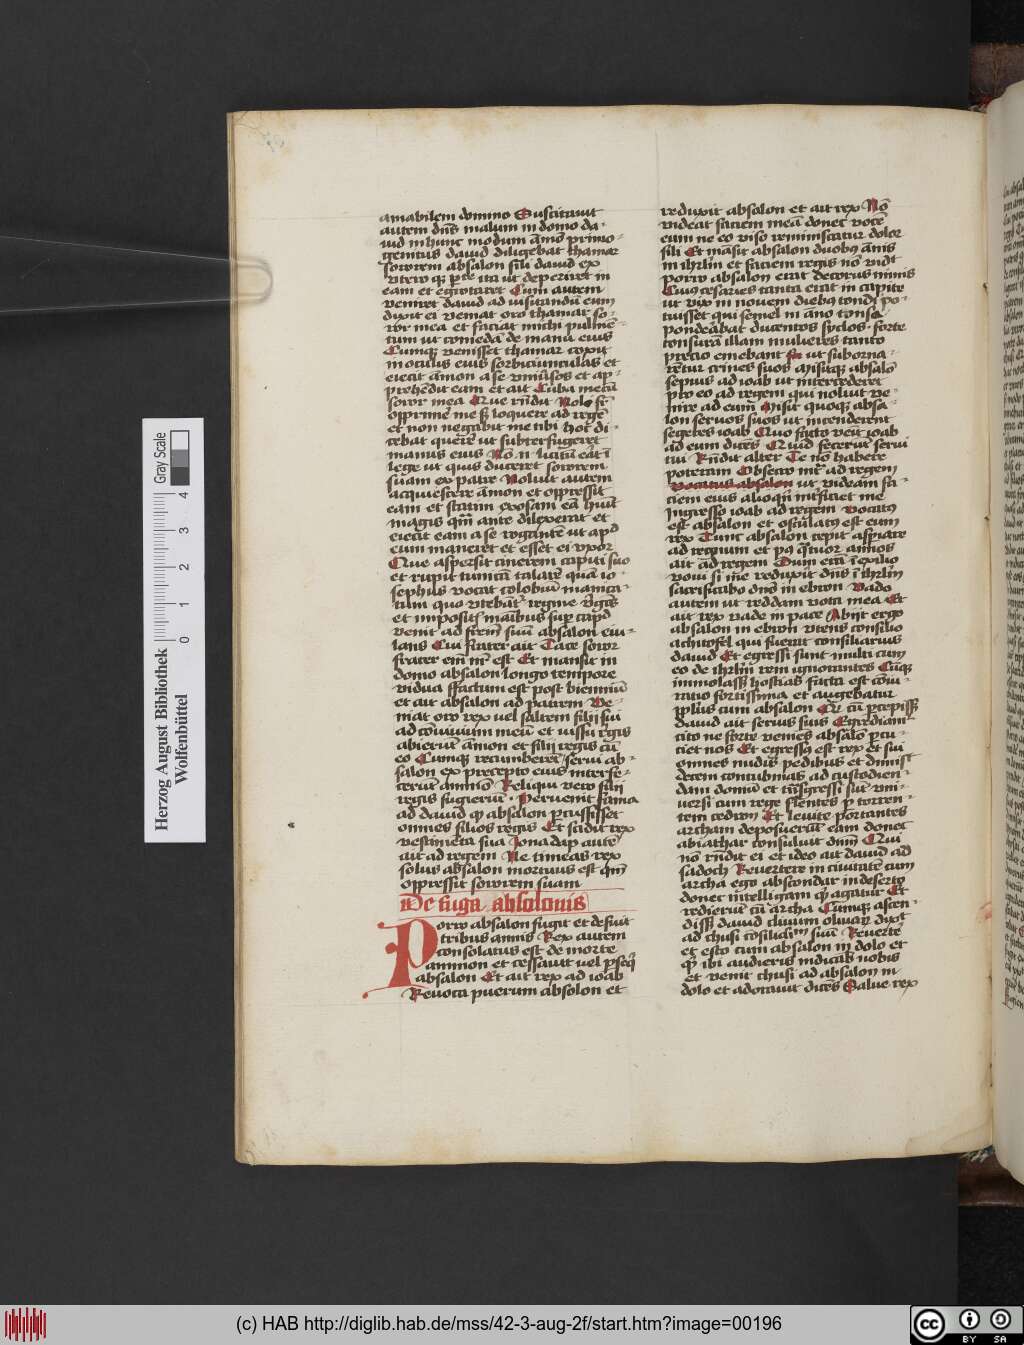 amabilem domino Suscitauit
autem dn̄s malum in domo da-
uid in hunc modum ām̄o primo-
genitus dauid diligebat thamar
sororem absalon filī dauid ex
vtero qz ꝑte ita ut deperiret in
eam et egrotaret Cum autem
veniret dauid ad visitandū eum
dixit ei veniat oro thamar so-
ror mea et faciat michi pulmē-
tum ut comedā de manu eius
Cumqz venisset thamar coxit
in oculis eius sorbiciunculas et
eiecit āmon a se vniūsos et ap-
prehēdit eam et ait Cuba mecū
soror mea Que rn̄dit Noli fr̄
opprime me sꝫ loquere ad regē
et non negabit me tibi hoc di-
cebat querēs ut subterfugeret
manus eius Nō n̄ licitū erat ī
lege ut quis duceret sororem
suam ex patre Noluit autem
acquiescere āmon et oppressit
eam et statim exosam eā huit
magis qm̄ ante dilexerat et
eiecit eam a se rogantē ut apd
eum maneret et esset ei vxor
Que aspersit cinerem capiti suo
et rupit tunicā talarē quā io-
sephus vocat colobiū manica-
tum quo vtebant̄ regine vgīes
et impositis manibus suꝑ caput
venit ad frem̄ suū absalon eiu-
lans Cui frater ait Tace soror
frater em̄ tuus est Et mansit in
domo absalon longo tempore
vidua Factum est post bienniū
et ait absalon ad patrem Ve-
niat oro rex uel saltem filij sui
ad conuiuium meū et iussu regis
abierūt āmon et filij regis cū
eo Cumqz recumberēt serui ab-
salon ex precepto eius interfe-
cerūt ammō Reliqui vero filij
regis fugierūt. Peruenit fama
ad dauid qꝫ absalon ꝑcussisset
omnes filios regis Et scidit rex
vestimēta sua Jonadap autē
ait ad regem Ne timeas rex
solus absalon mortuus est qm̄
oppressit sororem suam
De fuga absolonis
Porro absalon fugit et defuit
tribus annis Rex autem
consolatus est de morte
ammon et cessauit uel ꝑseqꝫ
absalon Et ait rex ad ioab
Reuoca puerum absolon et
reduxit absalon et ait rex Nō
videat faciem meā donec vocē
eum ne eo viso reminiscatur dolor
fili Et māsit absalon duobus ānis
in ihrlm et faciem regis nō vidit
porro absalon erat decorus nimis
Cuius cesaries tanta erat in capite
ut vix in nouem diebus tondi po-
tuisset qui semel in āno tonso
pondeabat ducentos syclos. forte
tonsurā illam mulieres tanto
precio emebant ut suborna-
rētur crines suos Misitqz absalō
sepius ad ioab ut intercederet
pro eo ad regem qui noluit ve-
nire ad eum Misit quoqz absa-
lon seruos suos ut incenderent
segetes ioab Quo facto venit ioab
ad eum dicēs Quid fecerūt serui
tui Rn̄dit alter Te nō habere
poteram Obsecro intr̄ ad regem
vocatus absalon ut videam fa-
ciem eius alioqn̄ interficiet me
Ingresso ioab ad regem vocatus
est absalon et osculatus est eum
rex Tunc absalon cepit aspirare
ad regnum et post quatuor annos
ait ad regem Dum essem ī exilio
voui si me reduxit dn̄s ī ihrlm
sacrificabo dn̄o in ebron Vado
autem ut reddam vota mea Et
ait rex vade in pace Abijt ergo
absalon in ebron vtens consilio
achitofel qui fuerat consiliarius
dauid Et egressi sunt multi cum
eo de ihrlm rem ignorantes Cūqz
immolassꝫ hostias facta est coniu-
ratio fortissima et augebatur
pplus cum absalon Qr̄ cū ꝑcepissꝫ
dauid ait seruis suis Egrediam̄
cito ne forte veniēs absalō ꝑcu-
ciet nos Et egressus est rex et sui
omnes nudis pedibus et dimisit
decem concubinas ad custodien-
dam domū et transgressi sūt vni-
uersi cum rege flentes ꝑ torren-
tem cedron Et leuite portantes
archam deposuerūt eam donec
abiathar consuluit dn̄m Cui
nō rn̄dit ei et ideo ait dauid ad
sadoch Reuertere in ciuitatē cum
archa ego abscondar in deserto
donec intelligam qꝫ agatur Et
redierūt cū archa Cumqz ascen-
dissꝫ dauid cliuum oliuarū dixit
ad chusi cōsiliariū suū Reuertē
et esto cum absalon in dolo et
qꝫ ibi audieris indicab nobis
et venit chusi ad absalon in
dolo et adorauit dicēs Salue rex
Herzog August Bibliothek
Wolfenbüttel
0 1 2 3 4
Gray Scale
(c) HAB http://diglib.hab.de/mss/42-3-aug-2f/start.htm?image=00196
cc BY SA